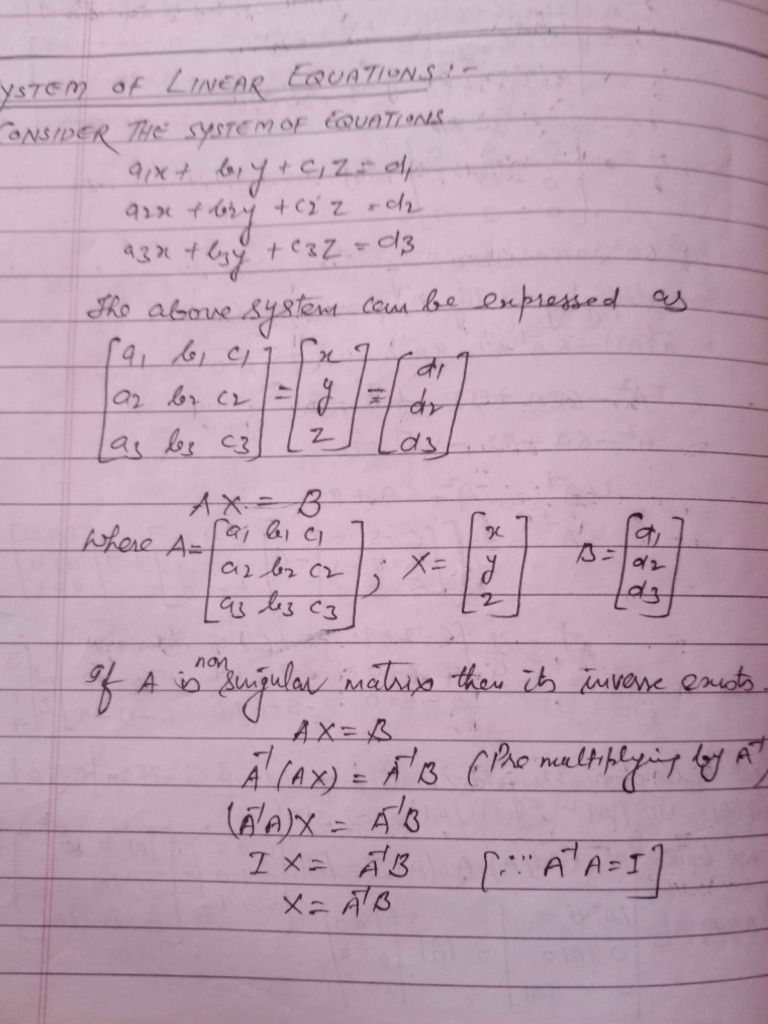 YSTEM OF LINEAR EQUATIONS:-
CONSIDER THE SYSTEM OF EQUATIONS
a1x + b1y + c1z = d1
a2x + b2y + c2z = d2
a3x + b3y + c3z = d3
The above system can be expressed as
[a1 b1 c1] = [x] = [d1]
[a2 b2 c2] [y] [d2]
[a3 b3 c3] [z] [d3]
AX = B
Where A = [a1 b1 c1] ; X = [x] B = [d1]
[a2 b2 c2] [y] [d2]
[a3 b3 c3] [z] [d3]
If A is non singular matrix then its inverse exists.
AX = B
A⁻¹(AX) = A⁻¹B (Pre multiplying by A⁻¹)
(A⁻¹A)X = A⁻¹B
IX = A⁻¹B [∵ A⁻¹A = I]
X = A⁻¹B